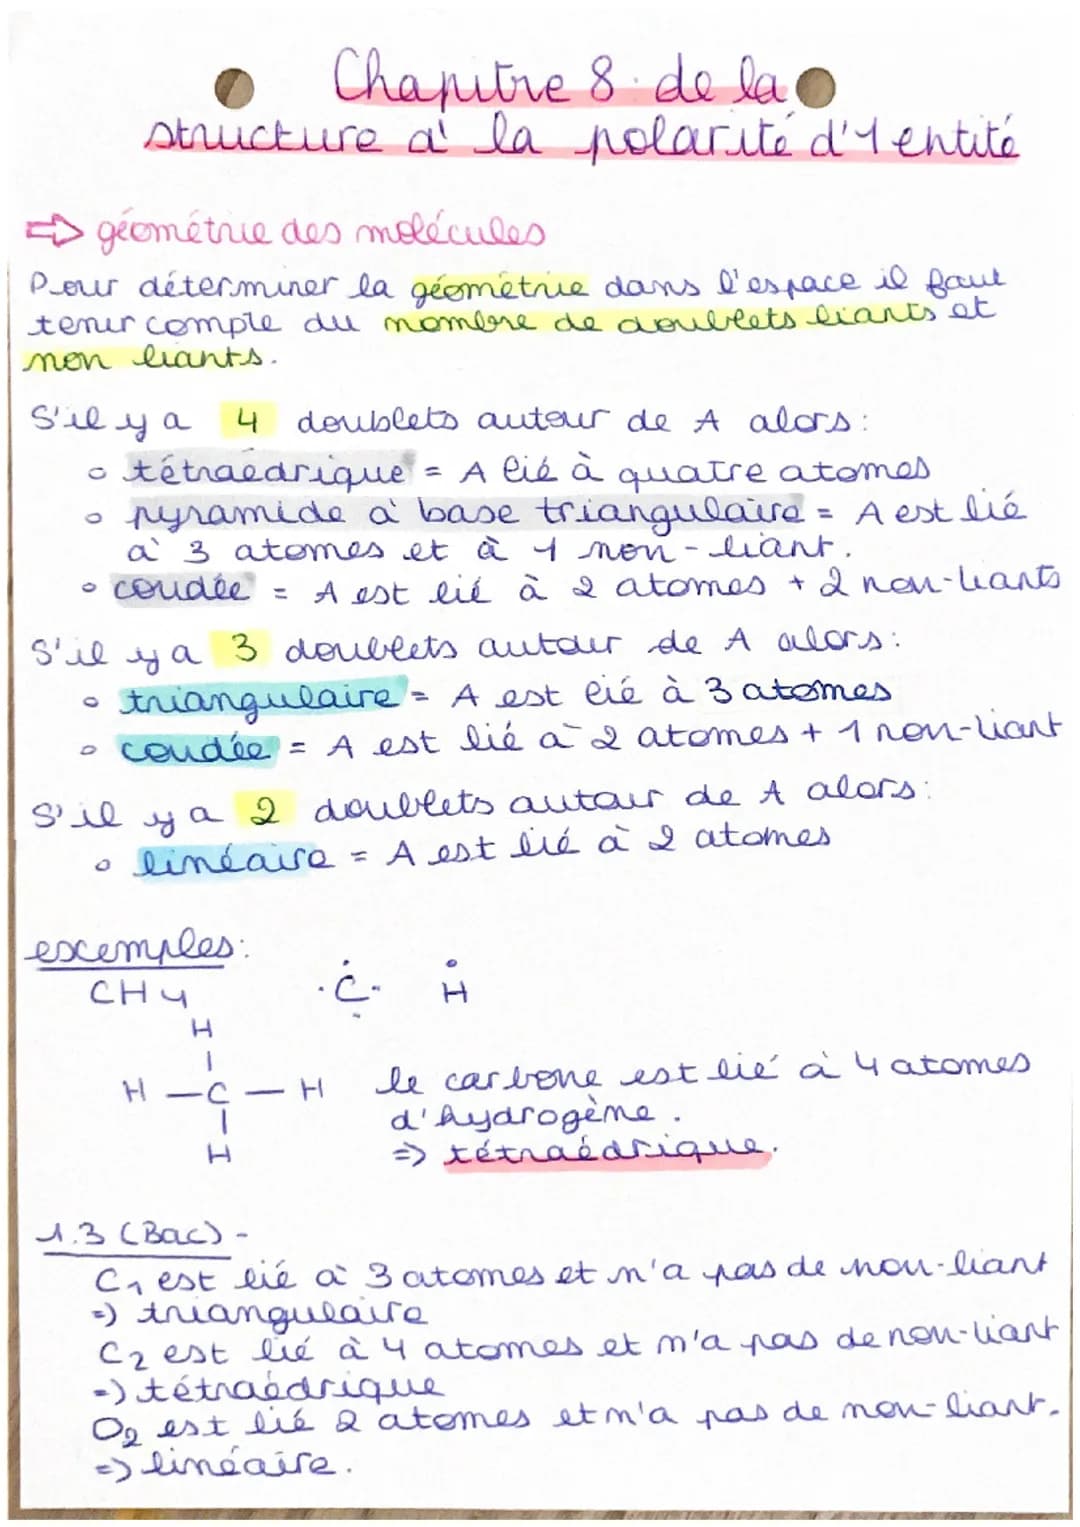 Chapitre 8: de la
structure à la polarité d'1 entité
⇒ géométrie des molécules
Pour déterminer la géométrie dans l'espace il faut
tenir comple du nombre de doublets liants et
non liants.
S'il y a 4 doublets autour de A alors:
o tétraédrique = A lié à quatre atomes
o pyramide à base triangulaire = A est lié
à 3 atomes et à 1 non-liant.
o coudée = A est lié à 2 atomes + 2 non-liants
S'il y a 3 doublets autour de A alors:
o triangulaire = A est lié à 3 atomes
o coudée = A est lié à 2 atomes + 1 non-liant
S'il y a 2 doublets autour de A alors:
o linéaire = A est lié à 2 atomes
exemples:
CH4 C H
H
H — C — H le carbone est lié à 4 atomes
d'hydrogène.
H => tétraédrique.
1.3 (Bac) -
C1 est lié à 3 atomes et n'a pas de non-liant
=) triangulaire
C2 est lié à 4 atomes et n'a pas de non-liant
=) tétraédrique
O2 est lié 2 atomes et n'a pas de non-liant.
=) linéaire.